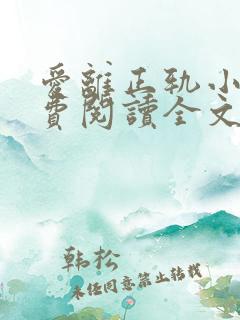 爱離正轨小
費閱讀全文
韩松
未经同意禁止转载